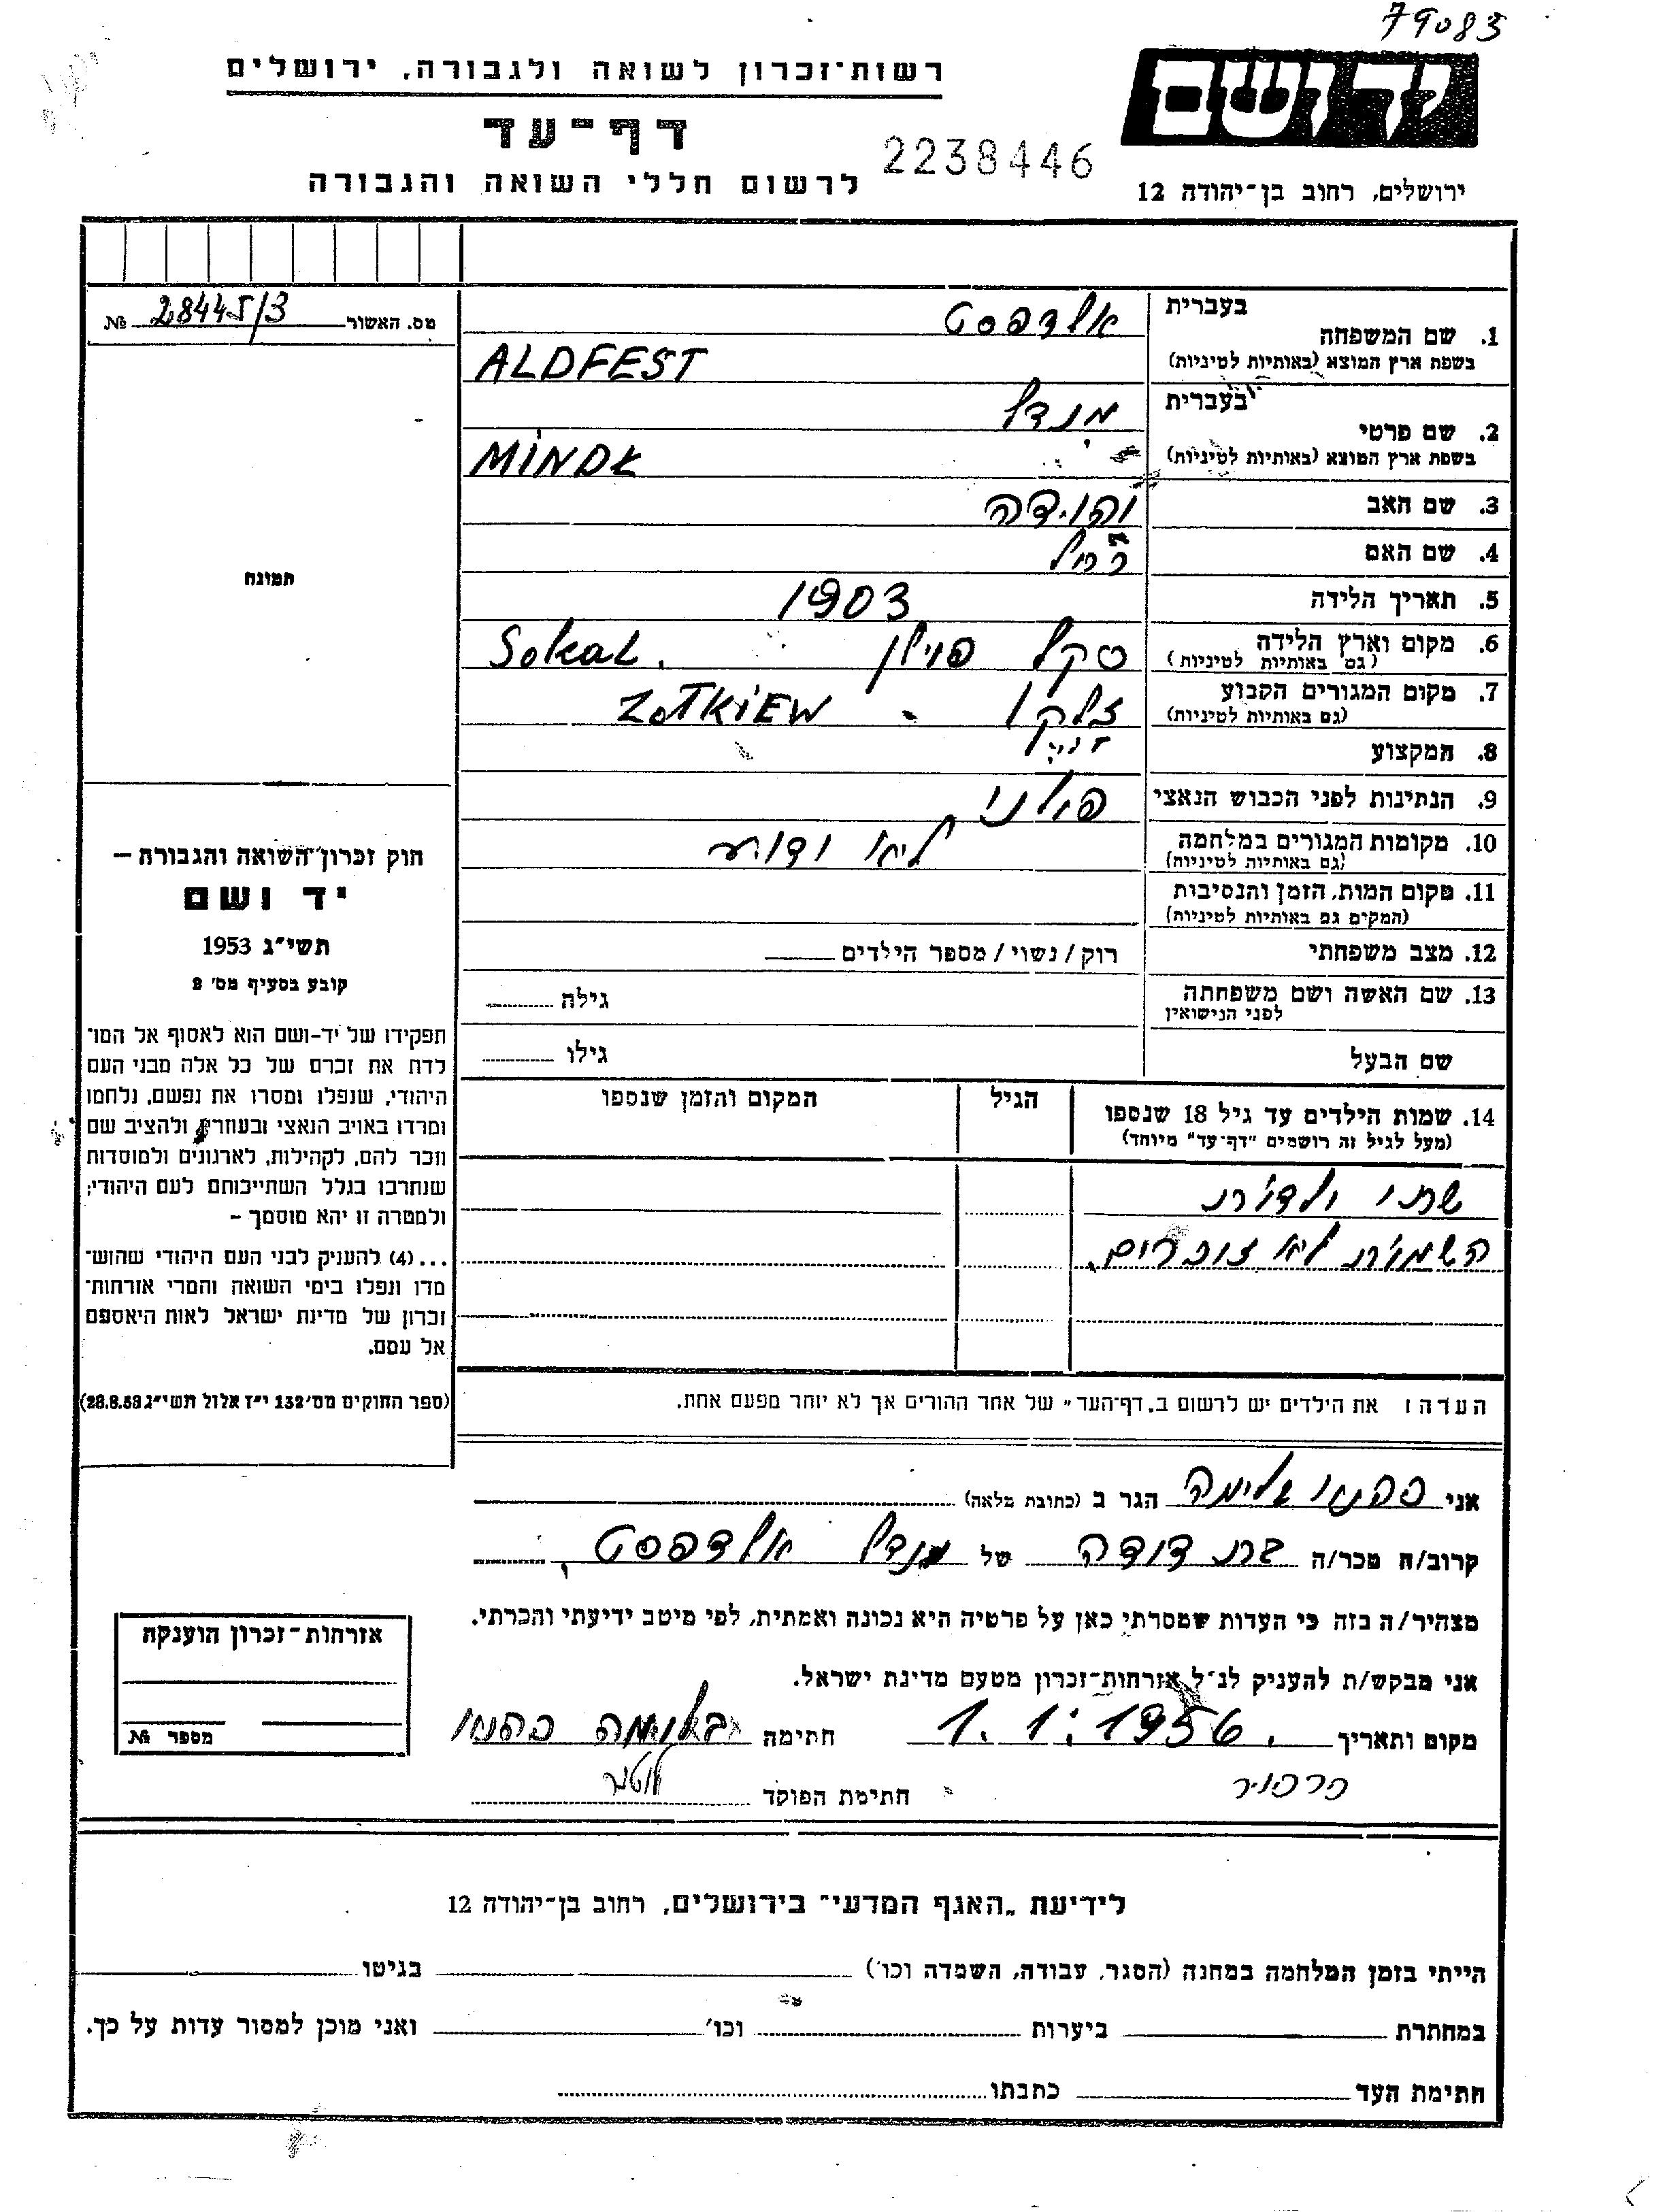 79083
יד ושם
רשות־זכרון לשואה ולגבורה, ירושלים
דף־עד
2238446
לרשום חללי השואה והגבורה
ירושלים, רחוב בן־יהודה 12
מס. האשור 28445/3 №
תמונה
1. שם המשפחה
בעברית אלדפסט
בשפת ארץ המוצא (באותיות לטיניות) ALDFEST
2. שם פרטי
בעברית מנדל
בשפת ארץ המוצא (באותיות לטיניות)
3. שם האב יהוידה
4. שם האם רחל
5. תאריך הלידה 1903
6. מקום וארץ הלידה
(גם באותיות לטיניות) סקל פוילן Sokal.
7. מקום המגורים הקבוע
(גם באותיות לטיניות) זלקו - ZOTKIEW
8. המקצוע
9. הנתינות לפני הכבוש הנאצי פולני
10. מקומות המגורים במלחמה
(גם באותיות לטיניות) לא ידוע
11. מקום המות, הזמן והנסיבות
(המקים גם באותיות לטיניות)
12. מצב משפחתי רוק / נשוי / מספר הילדים
13. שם האשה ושם משפחתה
לפני הנישואין גילה
שם הבעל גילו
14. שמות הילדים עד גיל 18 שנספו
(מעל לגיל זה רושמים "דף־עד" מיוחד)
הגיל
המקום והזמן שנספו
שתי ילדות
השמות לא זוכרים.
הערה: את הילדים יש לרשום ב„דף־העד" של אחד ההורים אך לא יותר מפעם אחת.
חוק זכרון השואה והגבורה —
יד ושם
תשי"ג 1953
קובע בסעיף מס' 2
תפקידו של יד-ושם הוא לאסוף אל המו־
לדת את זכרם של כל אלה מבני העם
היהודי, שנפלו ומסרו את נפשם, נלחמו
ומרדו באויב הנאצי ובעוזריו, ולהציב שם
וזכר להם, לקהילות, לארגונים ולמוסדות
שנחרבו בגלל השתייכותם לעם היהודי;
ולמטרה זו יהא מוסמך –
...(4) להעניק לבני העם היהודי שהוש־
מדו ונפלו בימי השואה והמרי אזרחות־
זכרון של מדינת ישראל לאות היאספם
אל עמם.
(ספר החוקים מס' 132 י"ז אלול תשי"ג 28.8.53)
אני הגר ב (כתובת מלאה)
קרוב/ה מכר/ה בת דודה של מנדל אלדפסט
מצהיר/ה בזה כי העדות שמסרתי כאן על פרטיה היא נכונה ואמתית, לפי מיטב ידיעתי והכרתי.
אני מבקש/ת להעניק לנ"ל אזרחות־זכרון מטעם מדינת ישראל.
מקום ותאריך 1.1.1956 חתימה
חתימת הפוקד
אזרחות־זכרון הוענקה
מספר №
לידיעת „האגף המדעי" בירושלים, רחוב בן־יהודה 12
הייתי בזמן המלחמה במחנה (הסגר, עבודה, השמדה וכו') בגיטו
במחתרת ביערות וכו' ואני מוכן למסור עדות על כך.
חתימת העד כתבתו